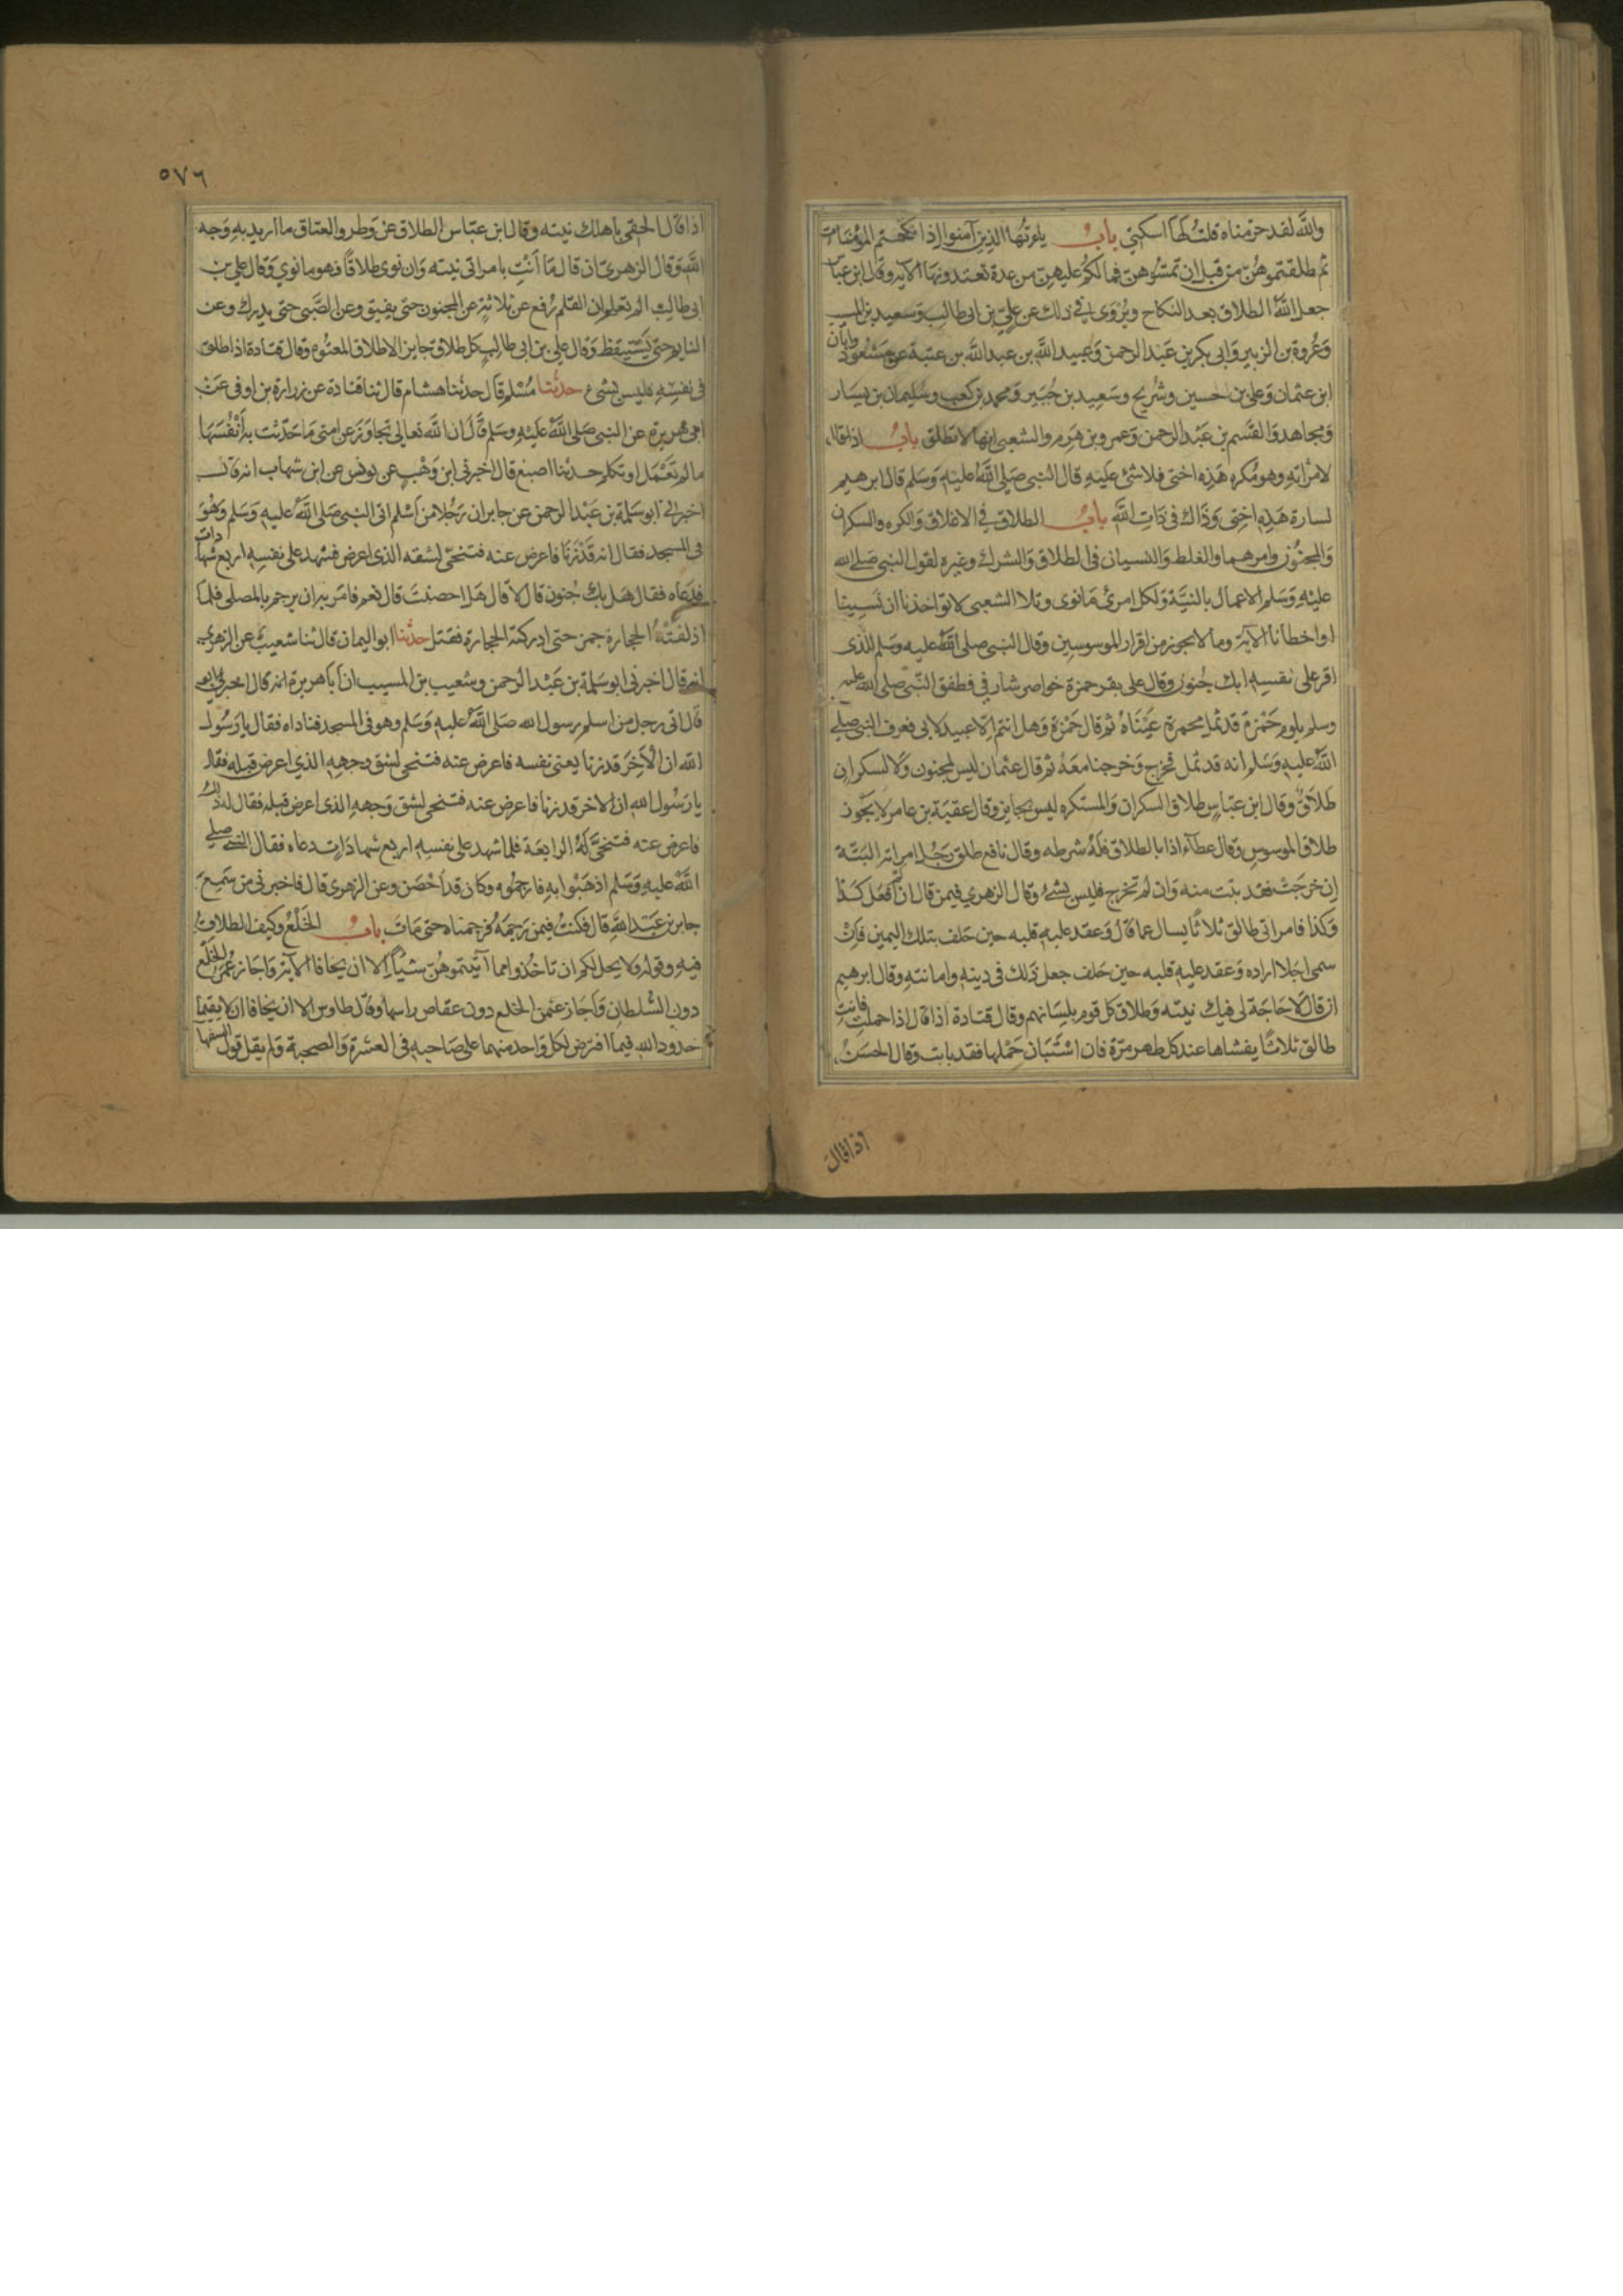 والله لقد حرمناه قلت لها اسكتي باب يا ايها الذين آمنوا اذا نكحتم المؤمنات
ثم طلقتموهن من قبل ان تمسوهن فما لكم عليهن من عدة تعتدونها الآية وقال ابن عباس
جعل الله الطلاق بعد النكاح ويروى في ذلك عن علي بن ابي طالب وسعيد بن المسيب
وعروة بن الزبير وابي بكر بن عبد الرحمن وعبيد الله بن عبد الله بن عتبة بن مسعود وابان
ابن عثمان وعلي بن حسين وشريح وسعيد بن جبير ومحمد بن كعب وسليمان بن يسار
ومجاهد والقسم بن عبد الرحمن وعمرو بن هرم والشعبي انها لا تطلق باب اذا قال
لامراته وهو مكره هذه اختي فلا شئ عليه قال النبي صلى الله عليه وسلم قال ابرهيم
لسارة هذه اختي وذاك في ذات الله باب الطلاق في الاغلاق والكره والسكران
والمجنون وامرهما والغلط والنسيان في الطلاق والشرك وغيره لقول النبي صلى الله
عليه وسلم الاعمال بالنية ولكل امرئ ما نوى وتلا الشعبي لا تواخذنا ان نسينا
او اخطانا الآية وما لا يجوز من اقرار الموسوسين وقال النبي صلى الله عليه وسلم للذي
اقر على نفسه ابك جنون وقال علي بقر حمزة خواصر شارفي فطفق النبي صلى الله عليه
وسلم يلوم حمزة قد ثمل محمرة عيناه ثم قال حمزة وهل انتم الا عبيد لابي فعرف النبي صلى
الله عليه وسلم انه قد ثمل فخرج وخرجنا معه ثم قال عثمان ليس لمجنون ولا لسكران
طلاق وقال ابن عباس طلاق السكران والمستكره ليس بجايز وقال عقبة بن عامر لا يجوز
طلاق الموسوس وقال عطاء اذا بالطلاق فله شرطه وقال نافع طلق رجل امراته البتة
ان خرجت فقد بتت منه وان لم تخرج فليس بشئ وقال الزهري فيمن قال ان لم افعل كذا
وكذا فامراتي طالق ثلاثا يسال عما قال وعقد عليه قلبه حين حلف بتلك اليمين فان
سمى اجلا اراده وعقد عليه قلبه حين حلف جعل ذلك في دينه وامانته وقال ابرهيم
ان قال لا حاجة لي فيك نيته وطلاق كل قوم بلسانهم وقال قتادة اذا قال اذا حملت فانت
طالق ثلاثا يغشاها عند كل طهر مرة فان استبان حملها فقد بانت وقال الحسن
اذا قال
٥٧٦
اذا قال الحقي باهلك نيته وقال ابن عباس الطلاق عن وطر والعتاق ما اريد به وجه
الله وقال الزهري ان قال ما انت بامراتي نيته وان نوى طلاقا فهو ما نوي وقال علي بن
ابي طالب الم تعلم ان القلم رفع عن ثلاثة عن المجنون حتى يفيق وعن الصبي حتى يدرك وعن
النايم حتى يستيقظ وقال علي بن ابي طالب كل طلاق جايز الا طلاق المعتوه وقال قتادة اذا طلق
في نفسه فليس بشئ حدثنا مسلم قال حدثنا هشام قال ثنا قتادة عن زرارة بن اوفى عن
ابي هريرة عن النبي صلى الله عليه وسلم قال ان الله تعالى تجاوز عن امتي ما حدثت به انفسها
ما لم تعمل او تكلم حدثنا اصبغ قال اخبرني ابن وهب عن يونس عن ابن شهاب انه قال
اخبرني ابو سلمة بن عبد الرحمن عن جابر ان رجلا من اسلم اتى النبي صلى الله عليه وسلم وهو
في المسجد فقال انه قد زنا فاعرض عنه فتنحى لشقه الذي اعرض فشهد على نفسه اربع شهادات
فدعاه فقال هل بك جنون قال لا قال هل احصنت قال نعم فامر به ان يرجم بالمصلى فلما
اذلقته الحجارة جمز حتى ادركته الحجارة فقتل حدثنا ابو اليمان قال ثنا شعيب عن الزهري
انه قال اخبرني ابو سلمة بن عبد الرحمن وشعيب بن المسيب ان ابا هريرة انه قال
قال اتى رجل من اسلم رسول الله صلى الله عليه وسلم وهو في المسجد فناداه فقال يا رسول
الله ان الآخر قد زنا يعني نفسه فاعرض عنه فتنحى لشق وجهه الذي اعرض قبله فقال
يا رسول الله ان الاخر قد زنا فاعرض عنه فتنحى لشق وجهه الذي اعرض قبله فقال له ذلك
فاعرض عنه فتنحى له الرابعة فلما شهد على نفسه اربع شهادات دعاه فقال النبي صلى
الله عليه وسلم اذهبوا به فارجموه وكان قد احصن وعن الزهري قال فاخبرني من سمع
جابر بن عبد الله قال فكنت فيمن رجمه فرجمناه حتى مات باب الخلع وكيف الطلاق
فيه وقوله ولا يحل لكم ان تاخذوا مما آتيتموهن شيا الا ان يخافا الآية واجاز عمر الخلع
دون السلطان واجاز عثمن الخلع دون عقاص راسها وقال طاوس الا ان يخافا ان لا يقيما
حدود الله فيما افترض لكل واحد منهما على صاحبه في العشرة والصحبة ولم يقل قول السفها